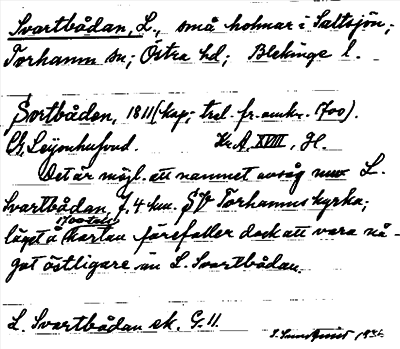 Svartbådan, L., små holmar i Saltsjön;
Torhamn sn; Östra hd; Blekinge l.
Svartbåden, 1811 (kop; trol. fr. omkr. 1700).
Chr. Leijonhufvud. Kr.A. XVIII, H.
Det är möjl. att namnet avsåg nuv L.
Svartbådan, f. 4 km. S v Torhamns kyrka;
läget å 1700-tals kartan förefaller dock att vara nå-
got östligare än L. Svartbådan.
L. Svartbådan ek. G. 11.